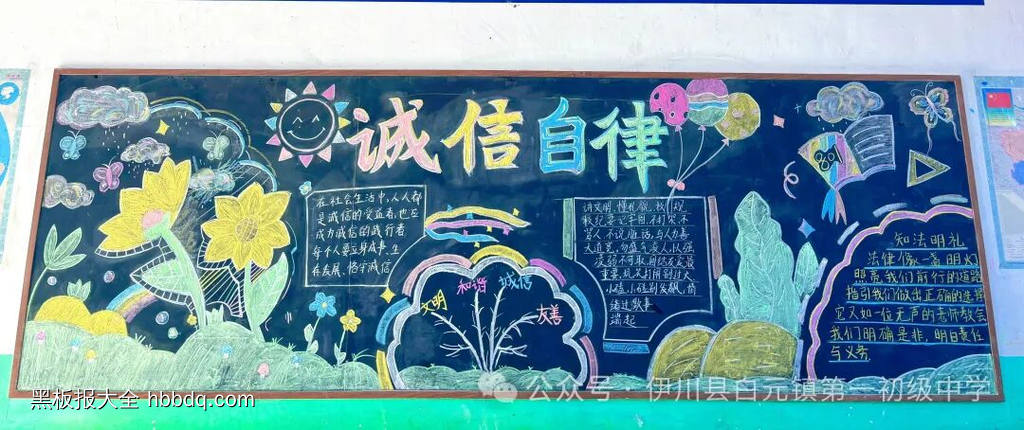 诚信自律
在社会生活中,人人都
是诚信的受益者,也应
成为诚信的践行者
每个人要立身成事、生
存发展、恪守诚信
文明
和谐
诚信
友善
讲文明,懂礼貌,我们
骂人不说脏话,与人为善
大道宽,勿盛气凌人,以强
知法明礼
法律像一盏明灯
照亮我们前行的道路
指引我们做出正确的选择
它又如一位无声的老师教会
我们明确是非,明白责任
与义务
黑板报大全 hbbdq.com
公众号·伊川县白元镇第一初级中学